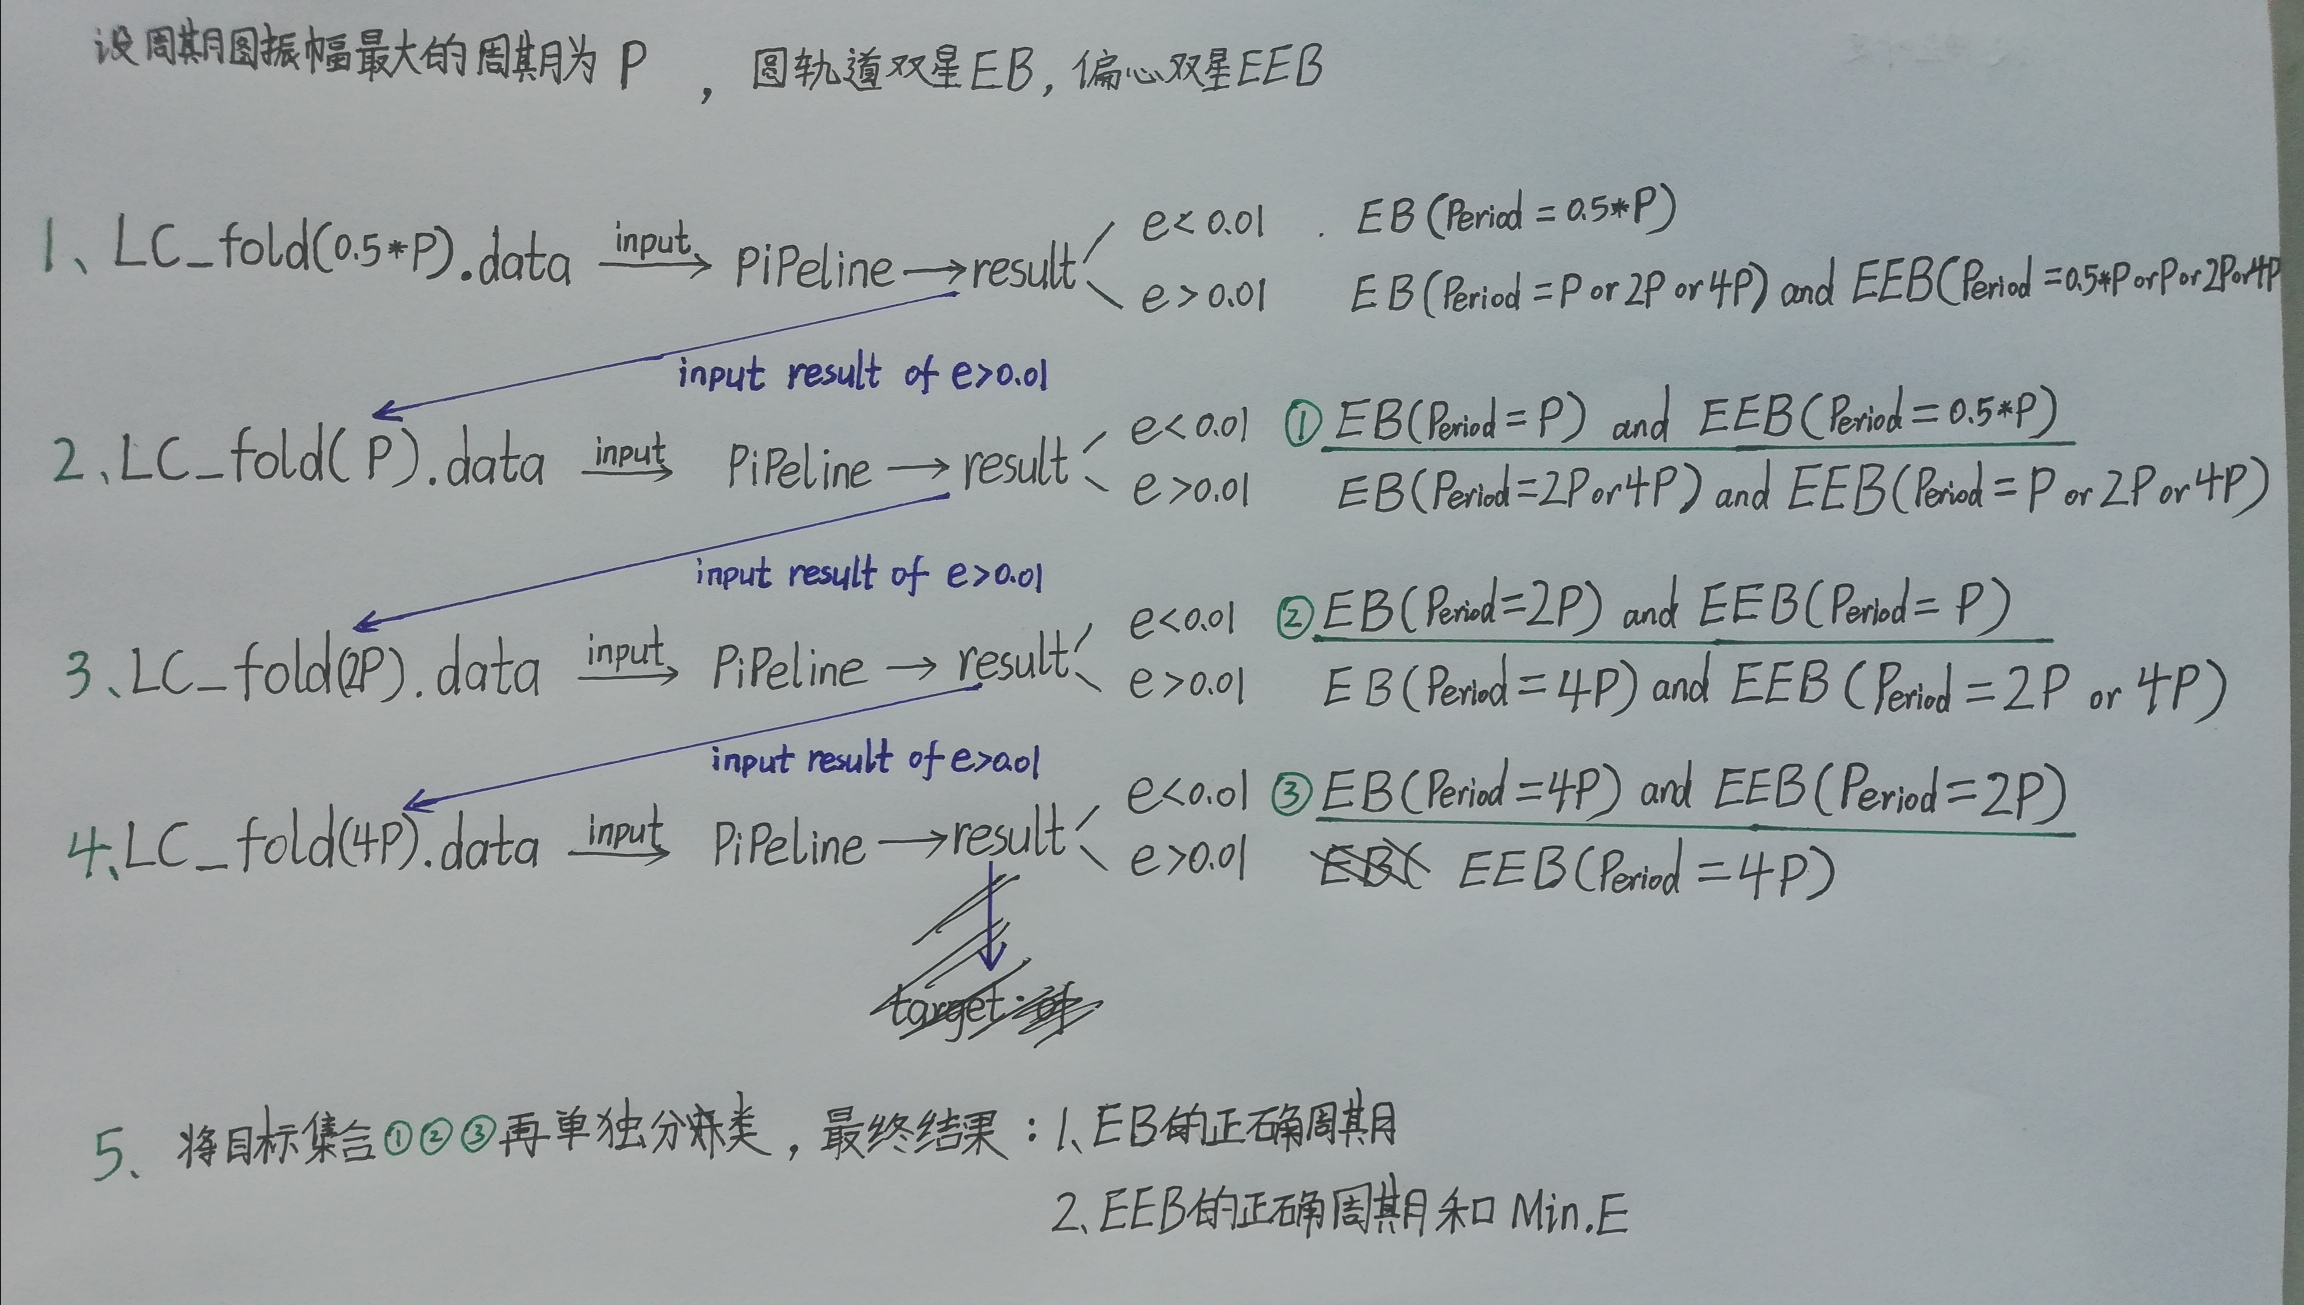 设周期图振幅最大的周期为 P , 圆轨道双星EB, 偏心双星EEB
1、LC_fold(0.5*P).data input PiPeline → result e<0.01 . EB(Period=0.5*P)
e>0.01 EB(Period=P or 2P or 4P) and EEB(Period=0.5*P or P or 2P or 4P
input result of e>0.01
2、LC_fold(P).data input PiPeline → result e<0.01 ① EB(Period=P) and EEB(Period=0.5*P)
e>0.01 EB(Period=2P or 4P) and EEB(Period=P or 2P or 4P)
input result of e>0.01
3、LC_fold(2P).data input PiPeline → result e<0.01 ② EB(Period=2P) and EEB(Period=P)
e>0.01 EB(Period=4P) and EEB(Period=2P or 4P)
input result of e>0.01
4、LC_fold(4P).data input PiPeline → result e<0.01 ③ EB(Period=4P) and EEB(Period=2P)
e>0.01 EB( EEB(Period=4P)
target
5、将目标集合①②③再单独分类, 最终结果: 1、EB的正确周期
2、EEB的正确周期和 Min.E